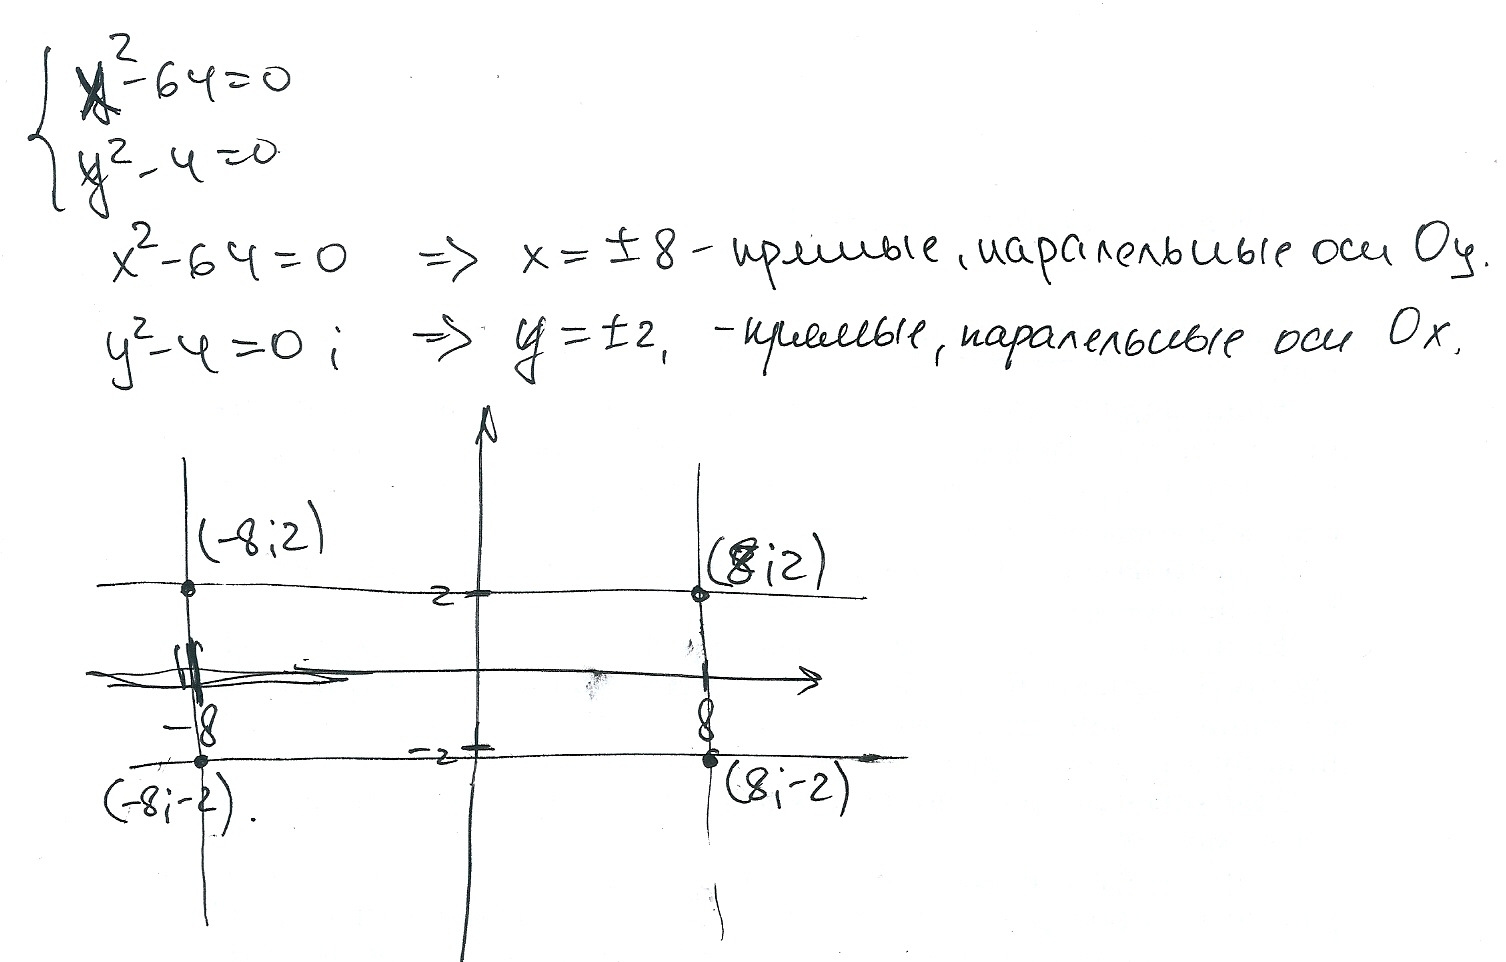 x²-64=0
y²-4=0
x²-64=0 => x=±8 - прямые, паралельные оси Oy.
y²-4=0; => y=±2, - прямые, паралельные оси Ox.
(-8;2)
(8;2)
2
-8
8
-2
(-8;-2).
(8;-2)